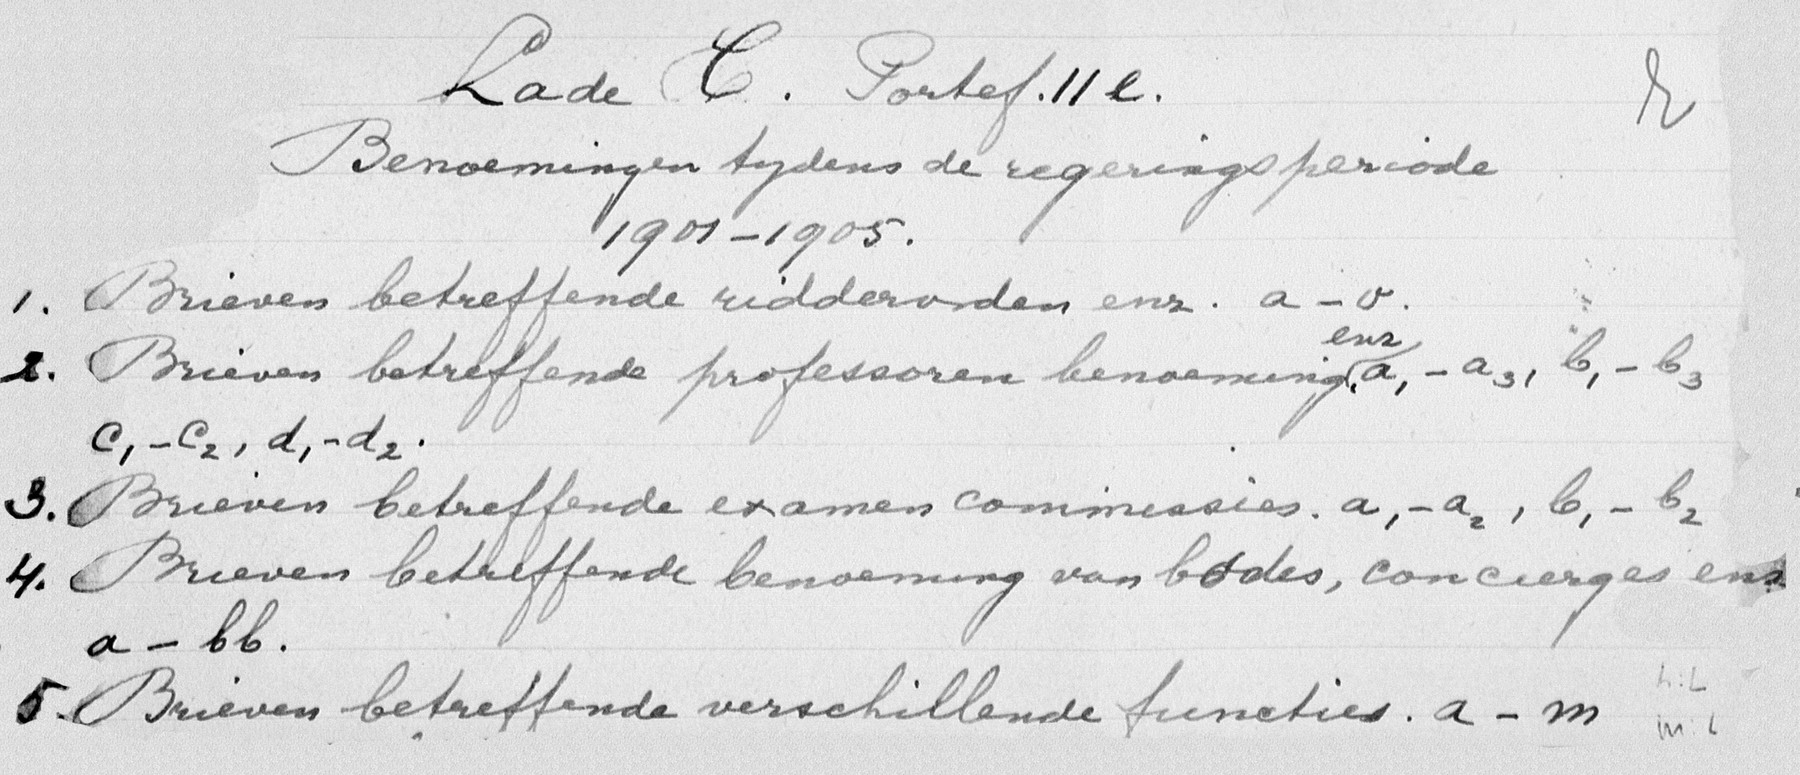 Lade C. Portef. 11 e.
Benoemingen tydens de regeringsperiode
1901-1905.
1. Brieven betreffende ridderorden enz. a - v.
enz
2. Brieven betreffende professoren benoeming, a₁ - a₃, b₁ - b₃
c₁ - c₂, d₁ - d₂.
3. Brieven betreffende examen commissies. a₁ - a₂, b₁ - b₂
4. Brieven betreffende benoeming van bodes, concierges enz
a - bb.
5. Brieven betreffende verschillende functies. a - m